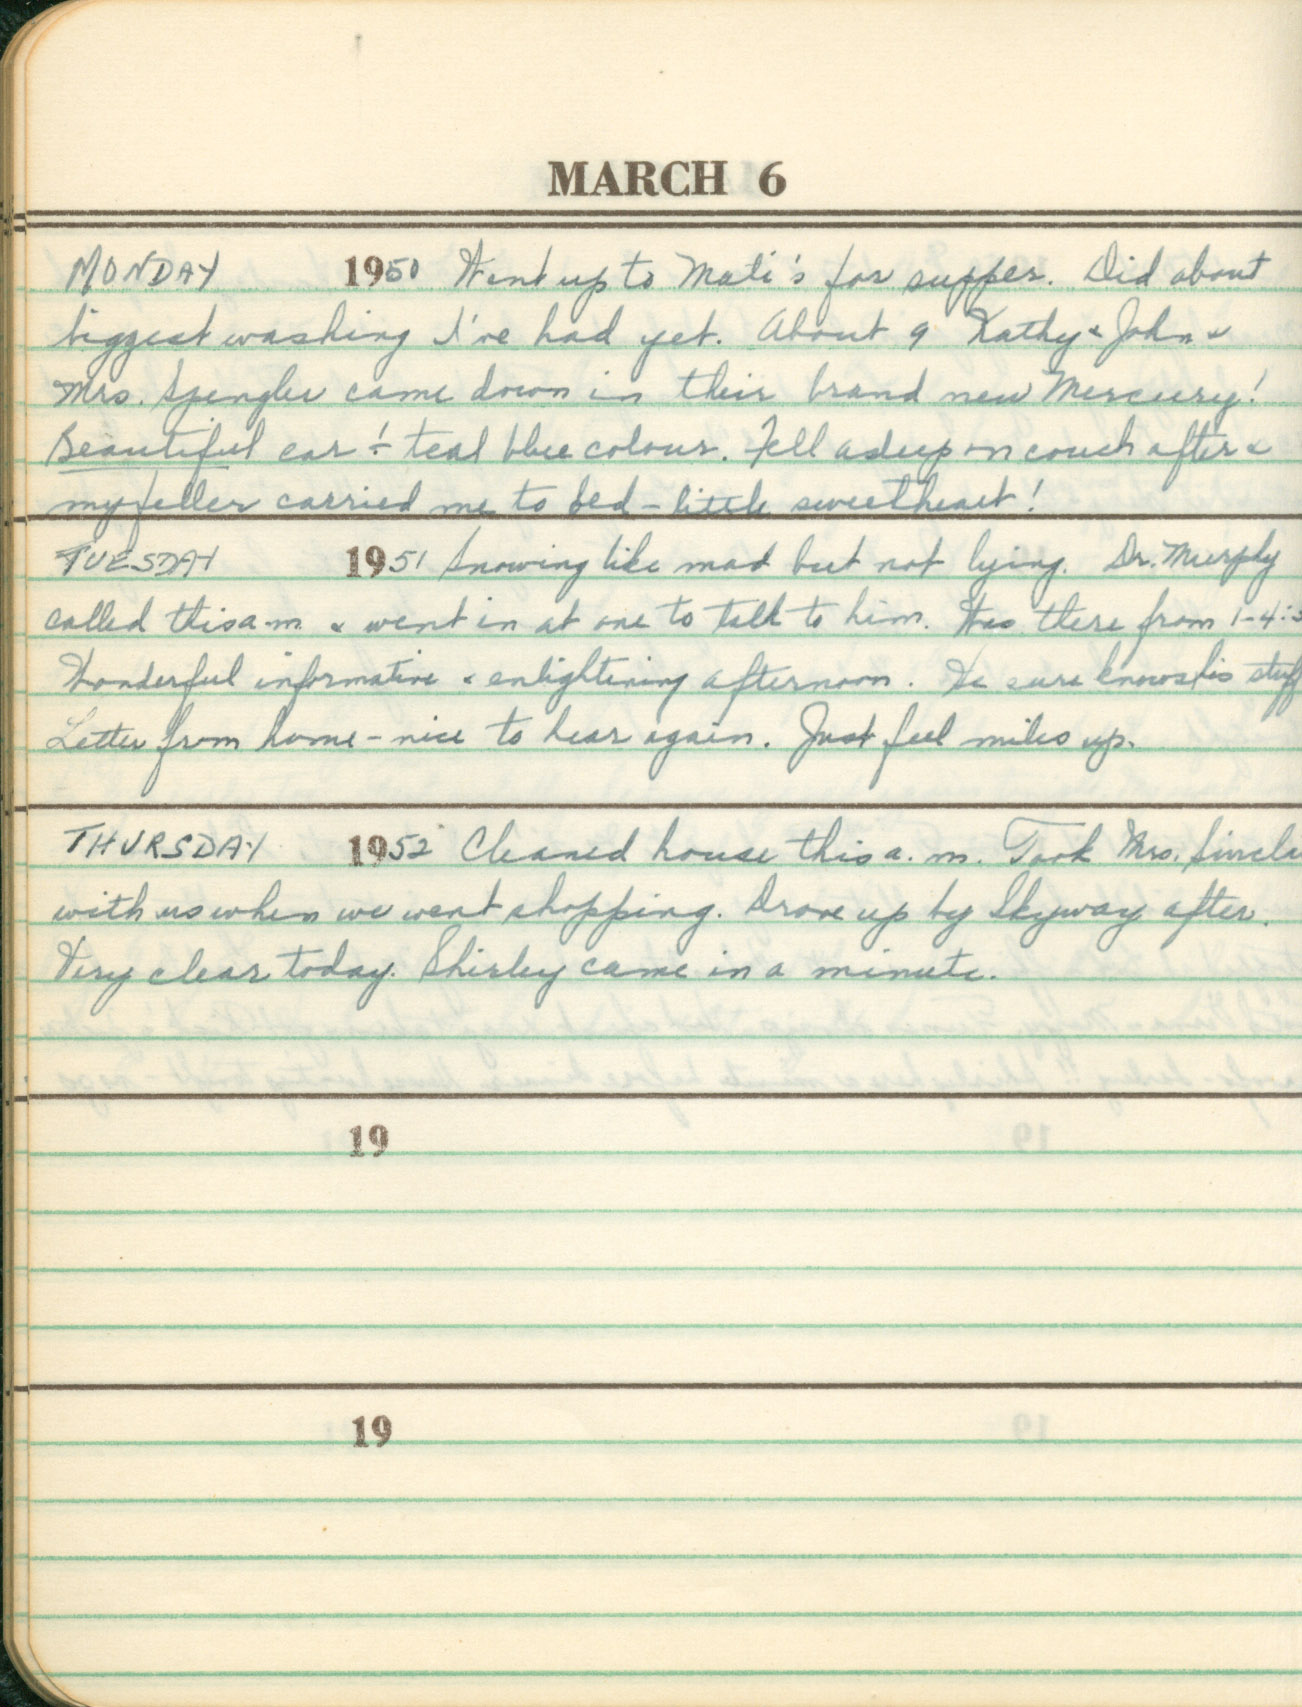 MARCH 6
MONDAY 1950 Went up to Mati's for supper. Did about
biggest washing I've had yet. About 9 Kathy & John &
Mrs. Spengler came down in their brand new Mercury!
Beautiful car! - teal blue colour. Fell asleep on couch after &
my feller carried me to bed - little sweetheart!
TUESDAY 1951 Snowing like mad but not lying. Dr. Murphy
called this a.m. & went in at one to talk to him. Was there from 1-4:
Wonderful informative & enlightining afternoon. He sure knows his stuff
Letter from home - nice to hear again. Just feel miles up.
THURSDAY 1952 Cleaned house this a.m. Took Mrs.
with us when we went shopping. Drove up by Skyway after.
Very clear today. Shirley came in a minute.
19
19